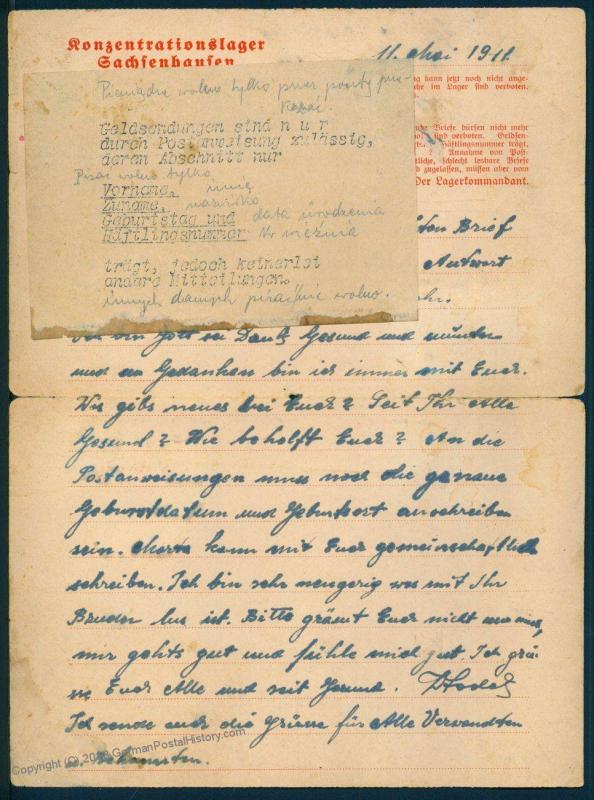 Konzentrationslager
Sachsenhausen
11. Mai 1941.
Pieniądze wolno tylko przez pocztę
Geldsendungen sind n u r
durch Postanweisung zulässig,
deren Abschnitt nur
Pisać wolno tylko
Vorname, imię
Zuname, nazwisko
Geburtstag und data urodzenia
Häftlingsnummer Nr więźnia
trägt, jedoch keinerlei
andere Mitteilungen.
innych danych pisać nie wolno.
kann jetzt noch nicht ange-
im Lager sind verboten.
Briefe dürfen nicht mehr
sind verboten. Geldsen-
Häftlingsnummer trägt,
Annahme von Post-
schlecht lesbare Briefe
zugelassen, müssen aber vom
Der Lagerkommandant.
Brief
Antwort
Gott sei Dank Gesund und munter
und in Gedanken bin ich immer mit Euch.
Was gibs neues bei Euch? Seit Ihr Alle
Gesund? Wie beholft Euch? An die
Postanweisungen muss noch die genaue
Geburtdatum und Geburtsort anschreiben
sein. kann mit Euch gemeinschaftlich
schreiben. Ich bin sehr neugerig was mit Ihr
Bruder los ist. Bitte grämt Euch nicht um mich,
mir gehts gut und fühle mich gut. Ich grü-
sse Euch Alle und seit Gesund.
Ich sende euch die Grüsse für Alle Verwandten
u. Bekannten.
Copyright (C) GermanPostalHistory.com